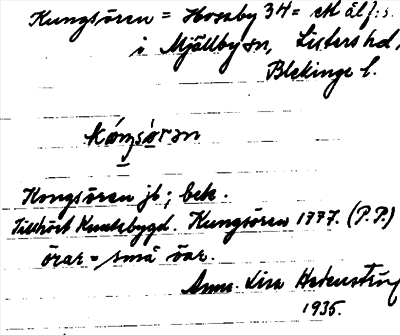 Kungsören = Hosaby 34 = ett älf:s.
i Mjällby sn, Listers hd,
Blekinge l.
kóŋsòrən
Kongsören jb; bek.
Tillhört Kustebygd. Kungsören 1777. (P.P.)
örar = små öar.
Anna-Lisa
1935.